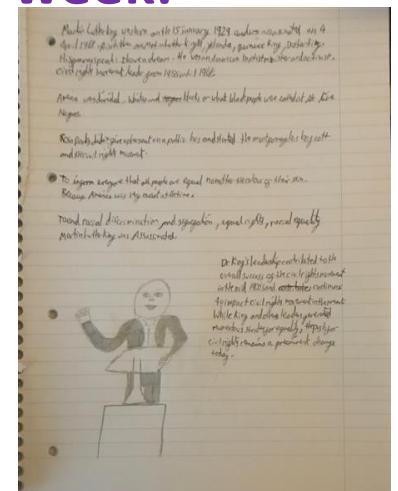 WEEK!
Martin Luther king was born on the 15 January 1929 and was assassinated on 4
April 1968. 
His famous speech I have a dream. He was an American Baptist minister and activist
civil right movement leader from 1955 until 1968.
America was divided. Whites and blacks or what black people were called at the time
Negros.
Rosa parks didn't give up her seat on a public bus and started the montgomery bus boycott
and the civil right movment.
To inform everyone that all people are equal no matter the colour of their skin.
Because America was very racist at the time.
To end racial discrimination and segregation, equal rights, racial equality
Martin Luther king was Assassinated.
Dr King's leadership contributed to the
overall success of the civil rights movement
in the mid 1900s and continues
to impact civil rights movment in the
While King and other leaders generated
momentous strides for equality, the push for
civil rights remains a prominent change
today.